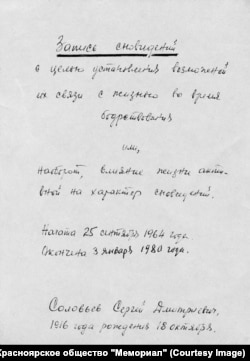 Запись сновидений
с целью установления возможной
их связи с жизнью во время
бодрствования
или,
наоборот, влияние жизни акти-
вной на характер сновидений.
Начата 25 сентября 1964 года.
Окончена 3 января 1980 года.
Соловьев Сергей Дмитриевич,
1916 года рождения 18 октября.
Красноярское общество "Мемориал" (Courtesy Image)